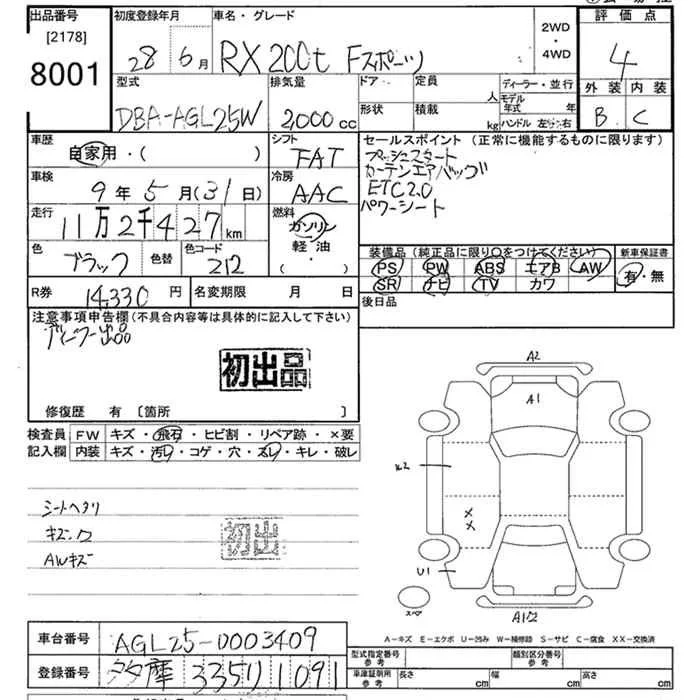 出品番号 初度登録年月 車名・グレード 評価点
[2178] 2WD
8001 28年 6月 RX 200t Fスポーツ ・ 4WD 4
型式 排気量 ドア 定員 ディーラー・並行 外装 内装
人 モデル年式 年
DBA-AGL25W 2,000cc 形状 積載 kg ハンドル 左・右 B C
車歴 シフト セールスポイント (正常に機能するものに限ります)
自家用・( ) FAT プッシュスタート
カーテンエアバッグ
車検 冷房 ETC2.0
9年 5月 (31日) AAC パワーシート
走行 燃料
11万2千427km ガソリン
色 色替 色コード 軽・油 装備品 (純正品に限り○をつけてください) 新車保証書
ブラック 212 ・( ) PS PW ABS エアB AW 有・無
SR ナビ TV カワ
R券 14,330円 名変期限 月 日 後日品
注意事項申告欄(不具合内容等は具体的に記入して下さい)
ディーラー出品
初出品
修復歴 有 [箇所 ]
検査員 FW キズ・飛石・ヒビ割・リペア跡・×要
記入欄 内装 キズ・汚レ・コゲ・穴・スレ・キレ・破レ
A2
A1
シートヘタリ
初出
AWキズ
U1
スペア
A1/2
A-キズ E-エクボ U-凹み W-補修跡 S-サビ C-腐食 XX-交換済
車台番号 AGL25-0003409 型式指定番号 参考 類別区分番号 参考
登録番号 多摩 335 り 1091 車庫証明用 参考 長さ cm 幅 cm 高さ cm